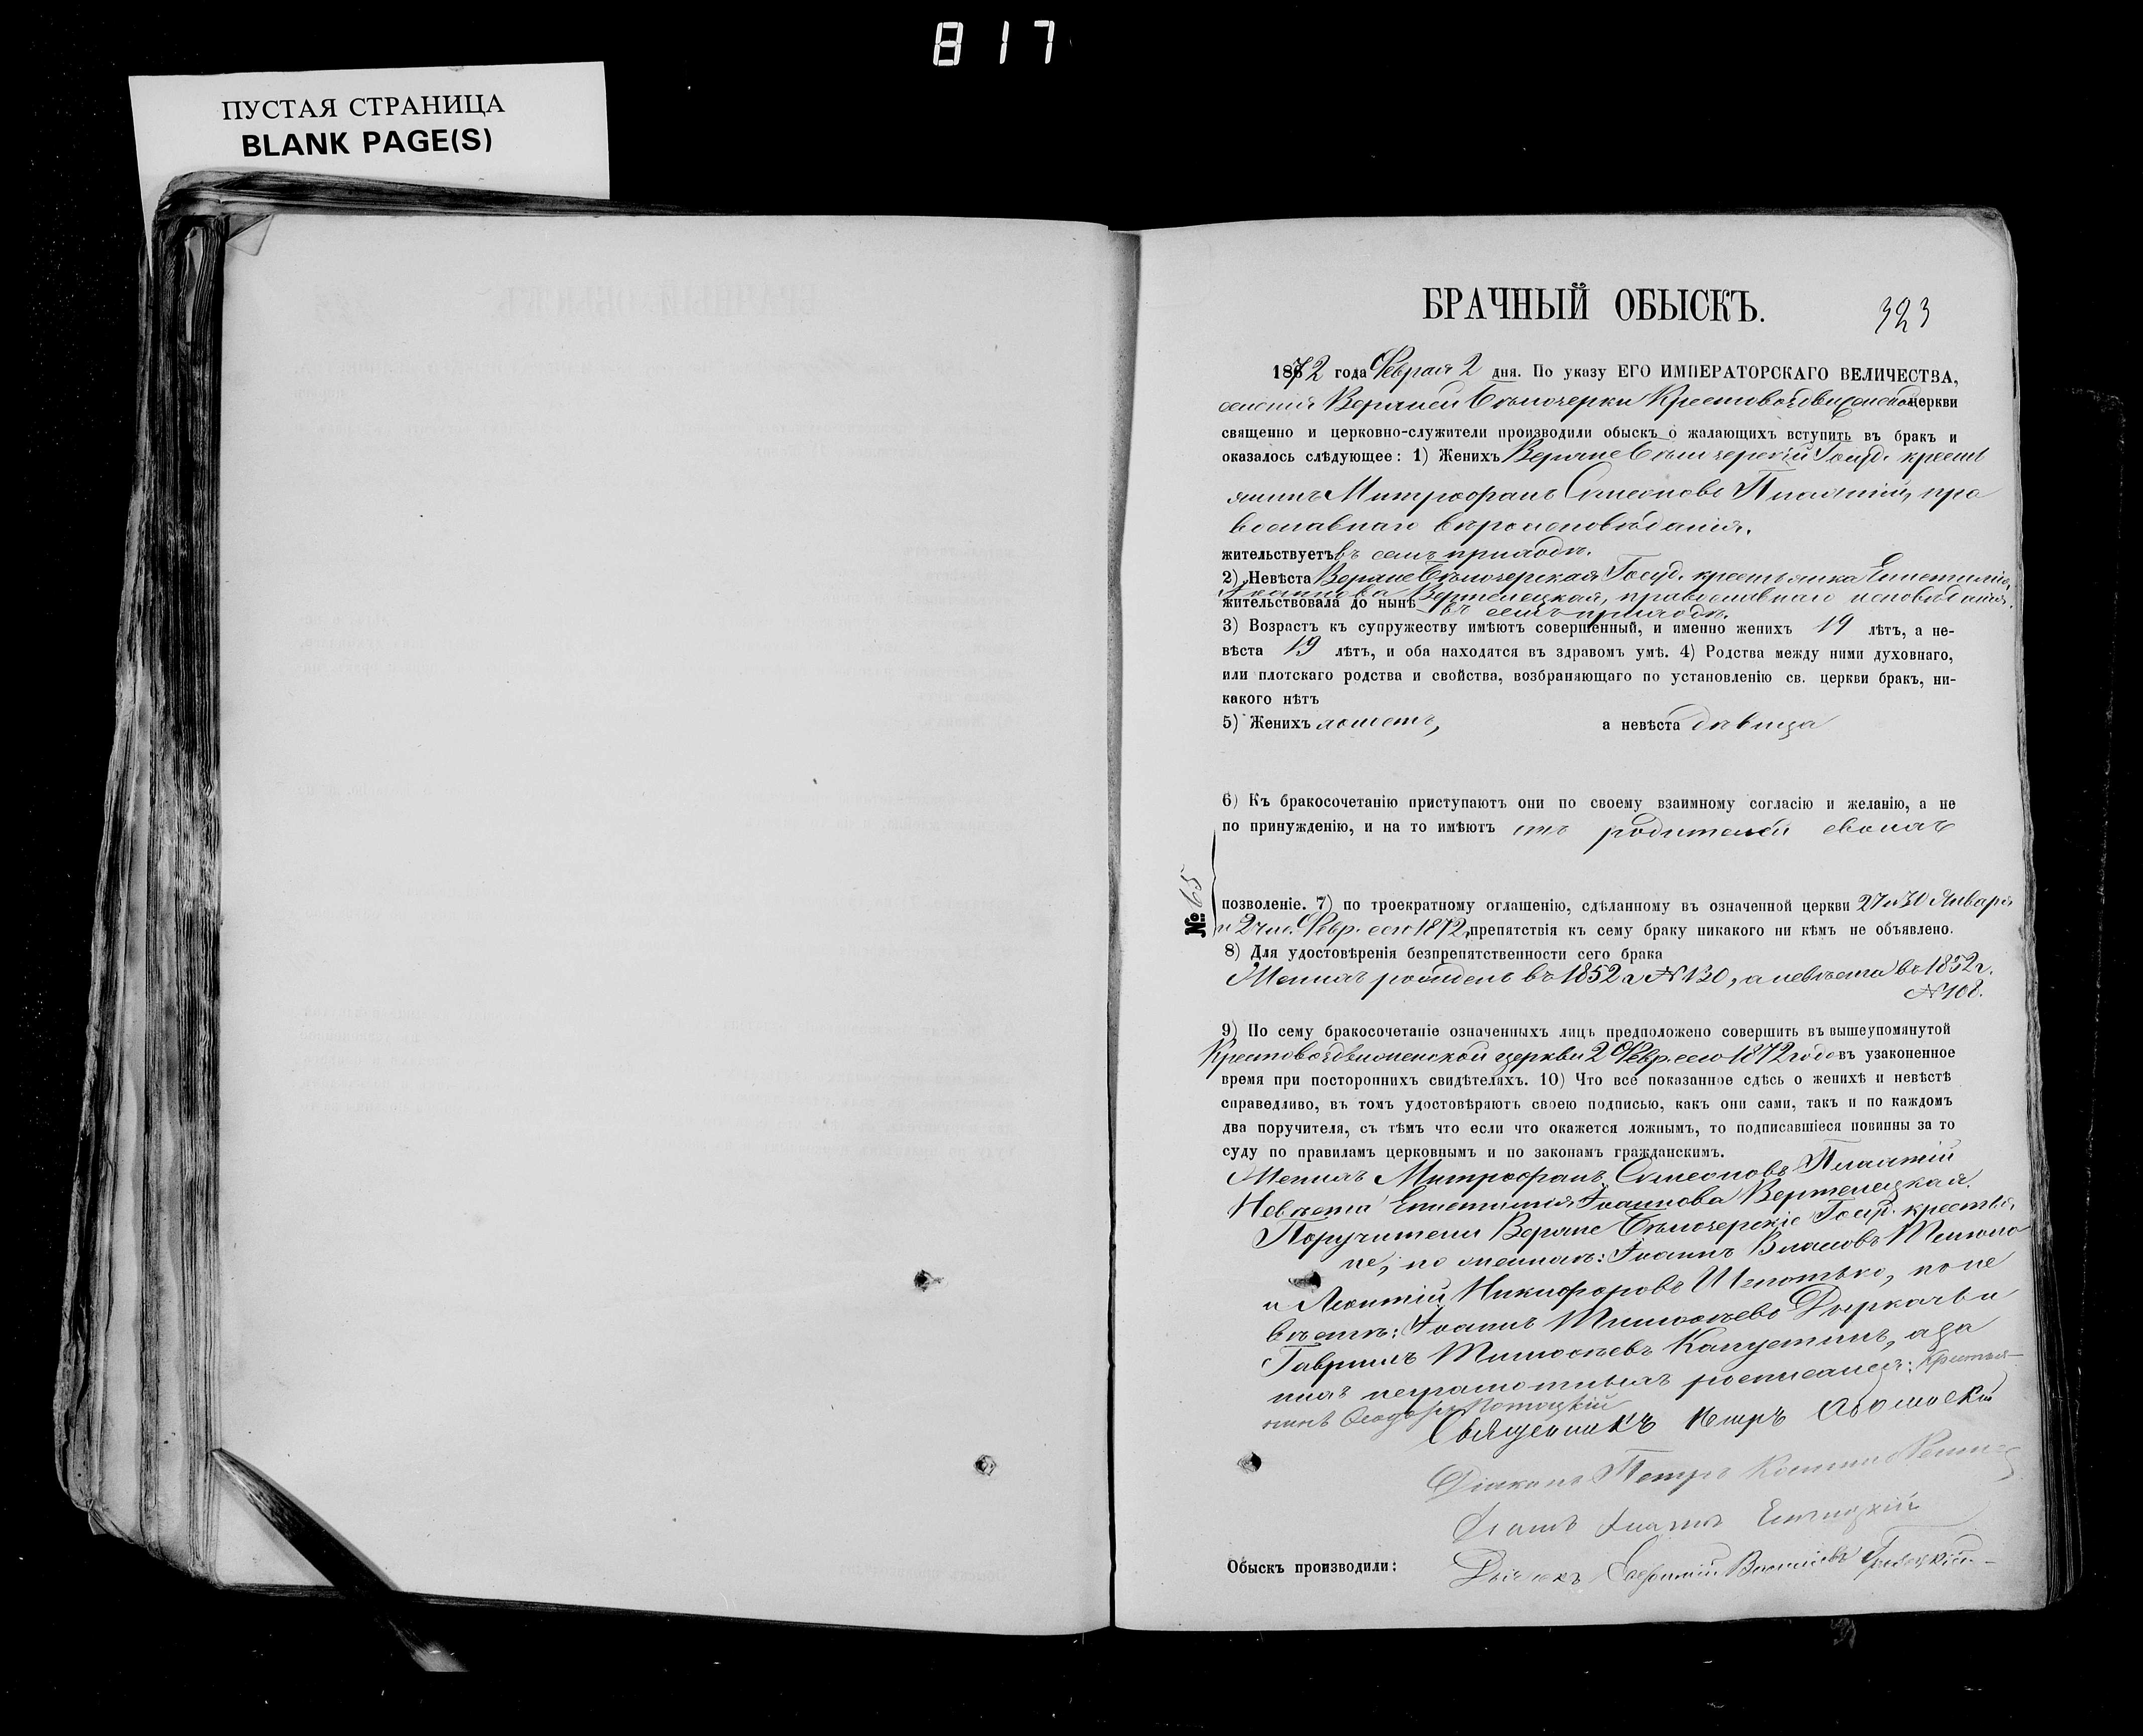 817
ПУСТАЯ СТРАНИЦА
BLANK PAGE(S)
БРАЧНЫЙ ОБЫСКЪ.
323
1872 года Февраля 2 дня. По указу ЕГО ИМПЕРАТОРСКАГО ВЕЛИЧЕСТВА,
Крестовоздвиженской церкви
священно и церковно-служители производили обыскъ о жалающихъ вступить въ бракъ и
оказалось слѣдующее: 1) Женихъ Верхне Бѣлозерскій Госуд. кресть
янинъ Митрофанъ Симеоновъ пра
вославнаго вѣроисповѣданія.
жительствуетъ въ семъ приходѣ.
2) Невѣста Верхне Бѣлозерская Госуд. крестьянка Епистимія
Іоаннова Вертелецкая, православнаго исповѣданія.
жительствовала до нынѣ въ семъ приходѣ.
3) Возрастъ къ супружеству имѣютъ совершенный, и именно женихъ 19 лѣтъ, а не-
вѣста 19 лѣтъ, и оба находятся въ здравомъ умѣ. 4) Родства между ними духовнаго,
или плотскаго родства и свойства, возбраняющаго по установленію св. церкви бракъ, ни-
какого нѣтъ
5) Женихъ холостъ, а невѣста дѣвица
6) Къ бракосочетанію приступаютъ они по своему взаимному согласію и желанію, а не
по принужденію, и на то имѣютъ отъ родителей своихъ
№ 65
позволеніе. 7) по троекратному оглашенію, сдѣланному въ означенной церкви 27 и 30 Января
и 2 чис. Февр. сего 1872, препятствія къ сему браку никакого ни кѣмъ не объявлено.
8) Для удостовѣренія безпрепятственности сего брака
Женихъ рожденъ въ 1852 г. № 130, а невѣста въ 1852 г.
№ 108.
9) По сему бракосочетаніе означенныхъ лицъ предположено совершить въ вышеупомянутой
Крестовоздвиженской церкви 2 Февр. сего 1872 года въ узаконенное
время при постороннихъ свидѣтеляхъ. 10) Что все показанное сдѣсь о женихѣ и невѣстѣ
справедливо, въ томъ удостовѣряютъ своею подписью, какъ они сами, такъ и по каждомъ
два поручителя, съ тѣмъ что если что окажется ложнымъ, то подписавшіеся повинны за то
суду по правиламъ церковнымъ и по законамъ гражданскимъ.
Женихъ Митрофанъ Симеоновъ
Невѣста Епистимія Іоаннова Вертелецкая.
Поручители Верхне Бѣлозерскіе Госуд. крестья
не, по женихѣ: Іоаннъ Власовъ
и Леонтій Никифоровъ по не
вѣстѣ: Іоаннъ Тимоѳеевъ Дыркачъ и
Гавріилъ Тимоѳеевъ Капустинъ, а за
нихъ неграмотныхъ росписался: Крестья-
нинъ Ѳеодоръ
Священникъ Петръ
Діаконъ Петръ
Іоаннъ
Обыскъ производили:
Дьячекъ